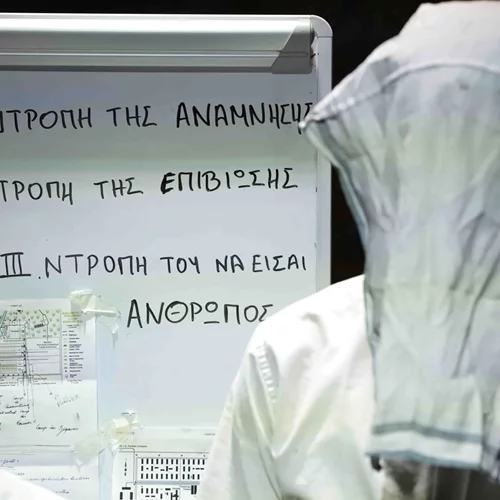 ΝΤΡΟΠΗ ΤΗΣ ΑΝΑΜΝΗΣΗΣ
ΤΡΟΠΗ ΤΗΣ ΕΠΙΒΙΩΣΗΣ
III. ΝΤΡΟΠΗ ΤΟΥ ΝΑ ΕΙΣΑΙ
ΑΝΘΡΩΠΟΣ